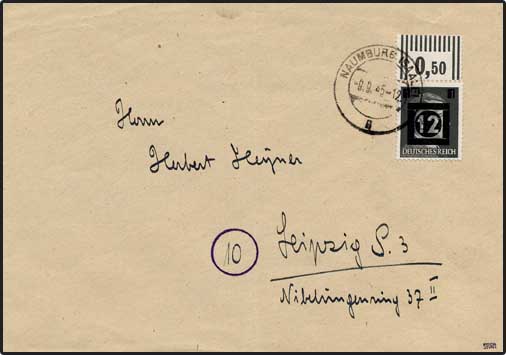 NAUMBURG (SAALE)
-9.9.45-12
a
0,50
12
DEUTSCHES REICH
Herrn
Herbert Heyner
10
Leipzig S. 3
Nibelungenring 37 II